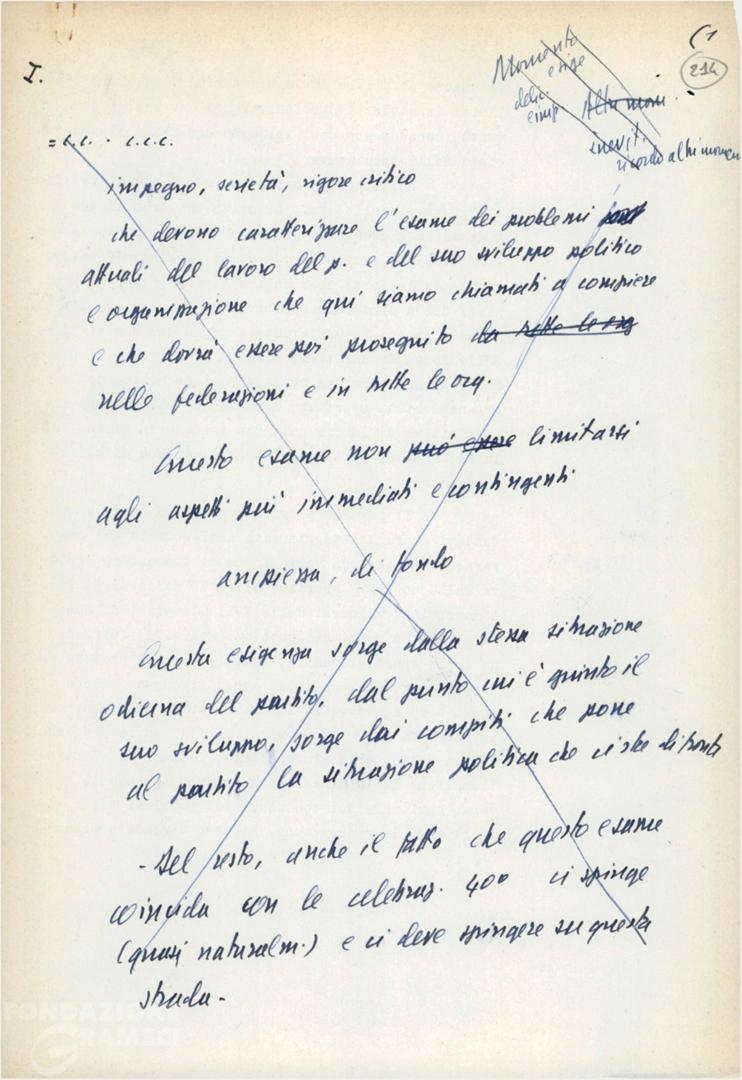 I.
(1
214
Momento
esige
Altri mom.
inevit.
ricordo altri momen
= C.C. - C.C.C.
impegno, serietà, rigore critico
che devono caratterizzare l'esame dei problemi
attuali del lavoro del p. e del suo sviluppo politico
e organizzazione che qui siamo chiamati a compiere
e che dovrà essere poi proseguito da tutte le org
nelle federazioni e in tutte le org.
Questo esame non può essere limitarsi
agli aspetti più immediati e contingenti
ampiezza, di fondo
Questa esigenza sorge dalla stessa situazione
odierna del partito, dal punto cui è giunto il
suo sviluppo, sorge dai compiti che pone
al partito la situazione politica che ci sta di fronte
- Del resto, anche il fatto che questo esame
coincida con le celebraz. 40º ci spinge
(quasi naturalm.) e ci deve spingere su questa
strada -
FONDAZIONE
GRAMSCI